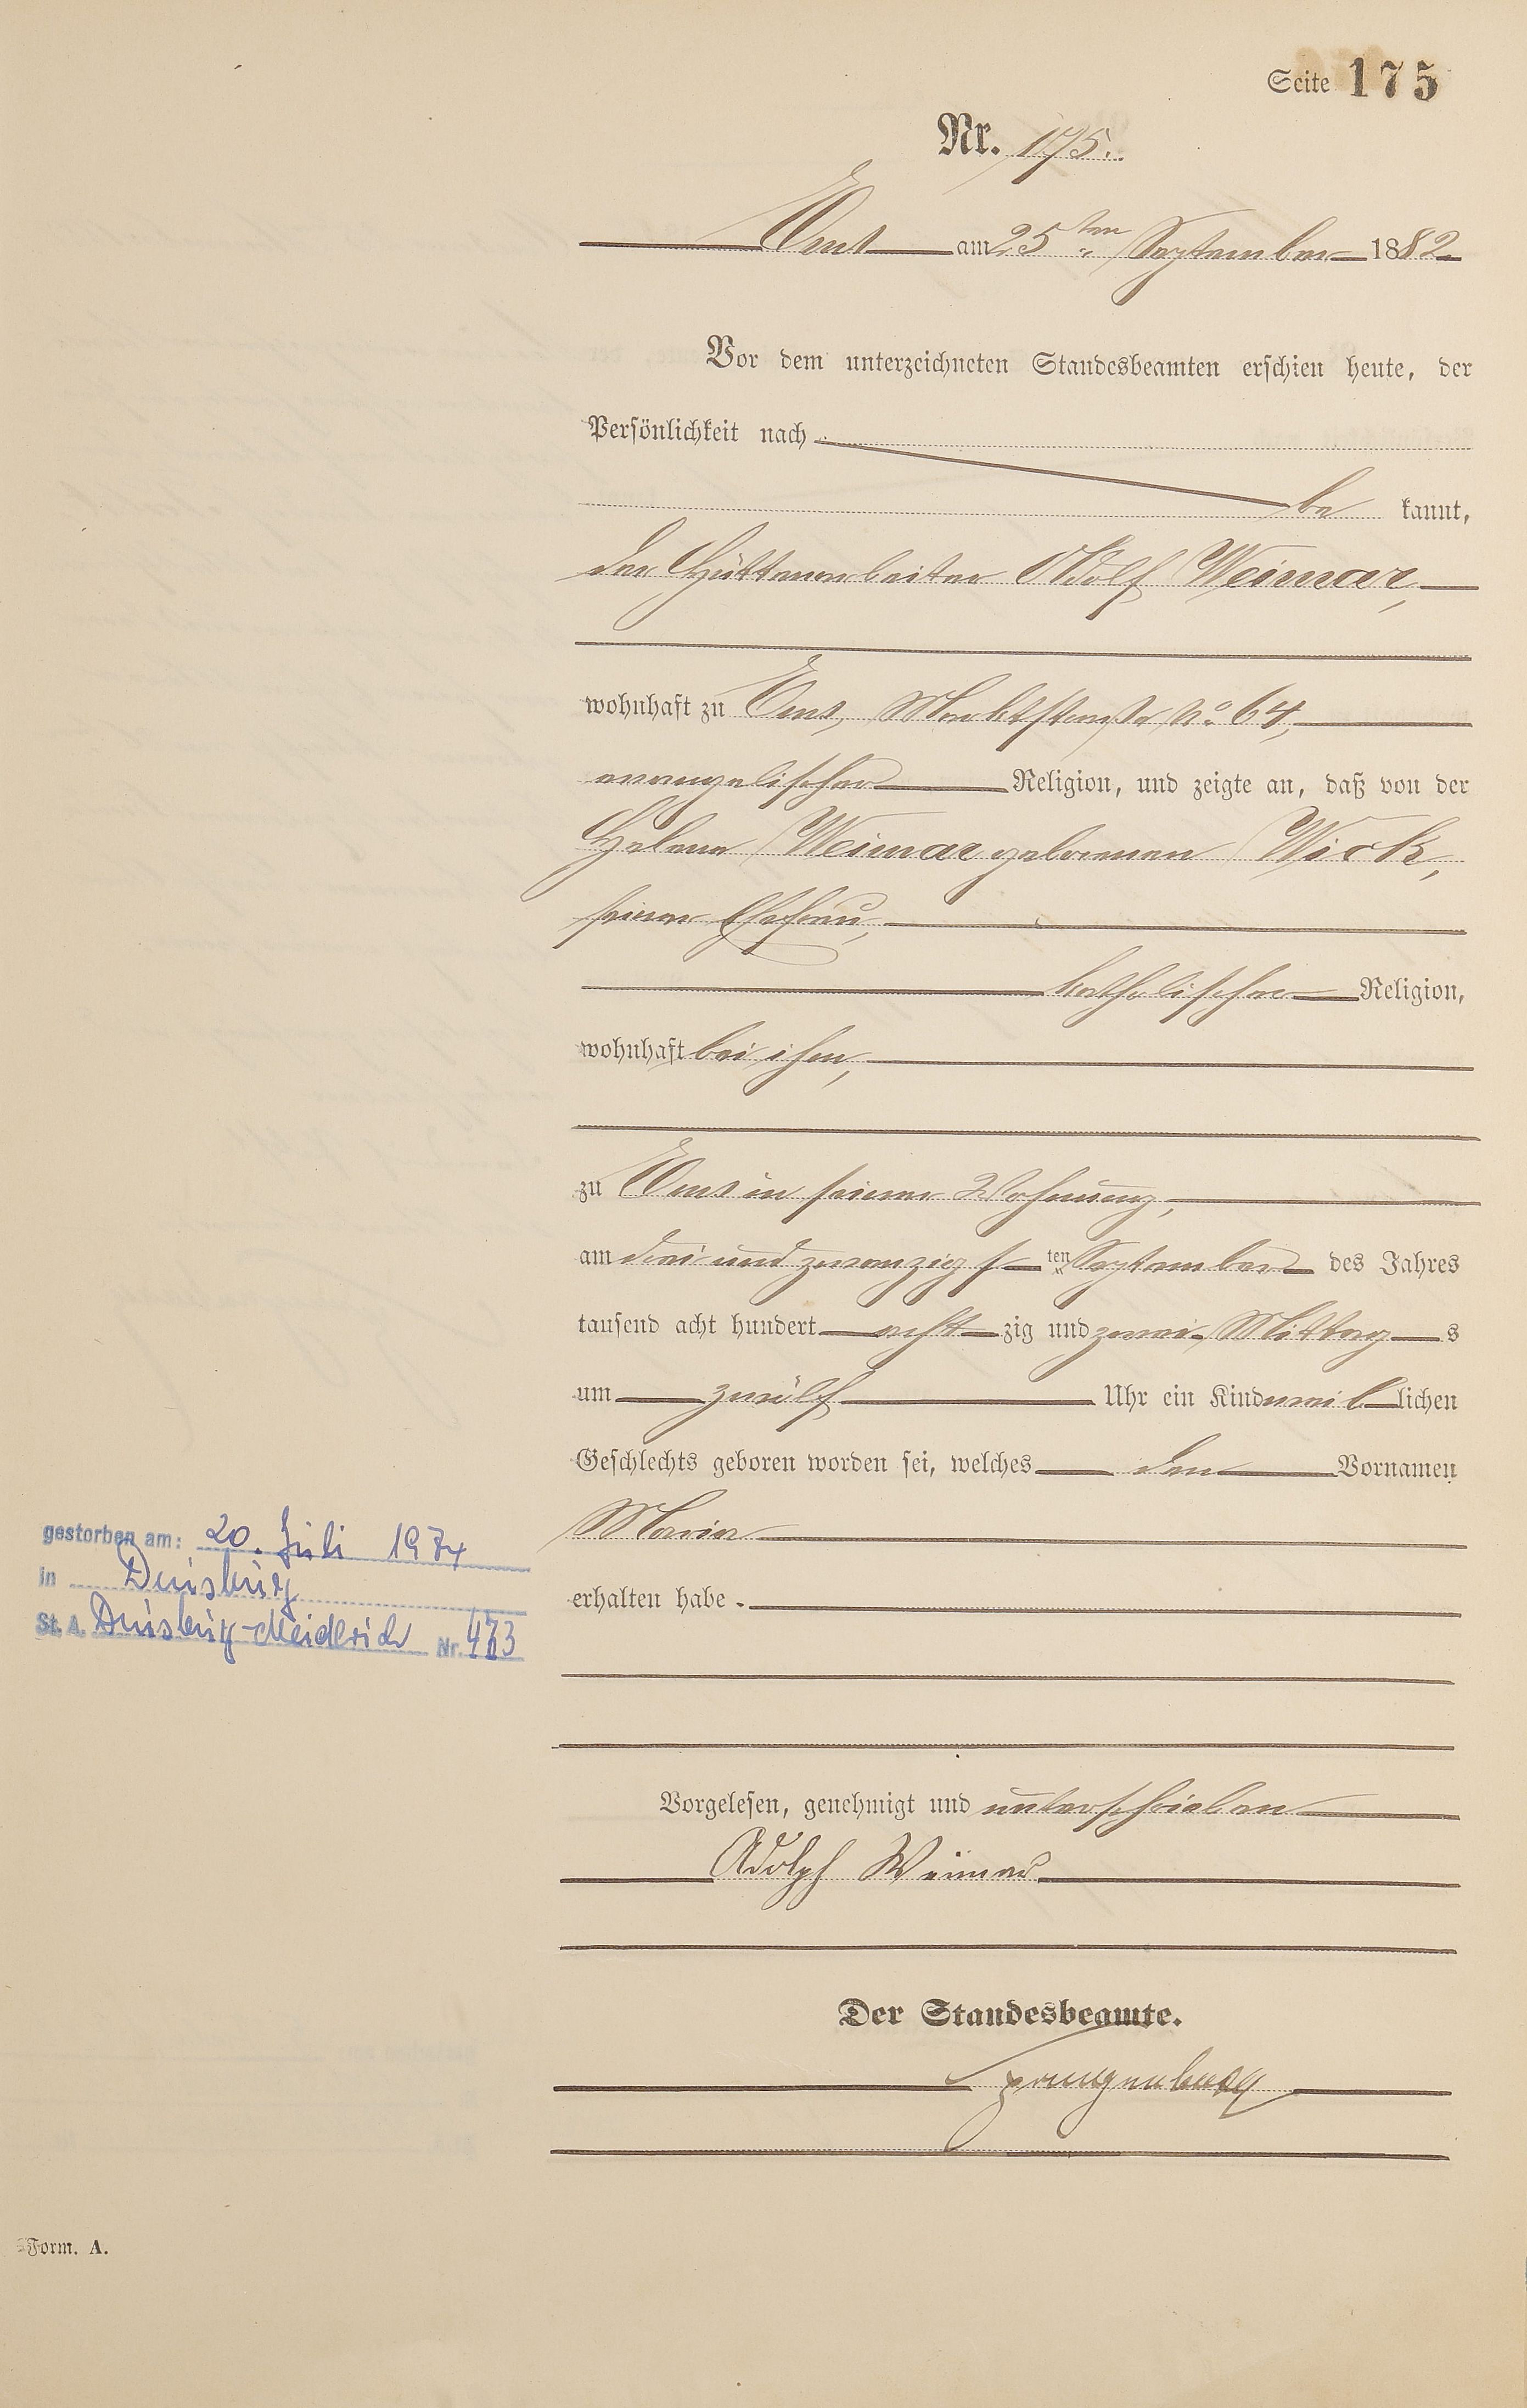 Seite 175
Nr. 175.
Ems am 25ten September 1882
Vor dem unterzeichneten Standesbeamten erschien heute, der
Persönlichkeit nach
be kannt,
der Hüttenarbeiter Adolf Weimar,
wohnhaft zu Ems, Marktstraße No. 64,
evangelischer Religion, und zeigte an, daß von der
Helene Weimar geborenen Wick,
seiner Ehefrau,
katholischer Religion,
wohnhaft bei ihm,
zu Ems in seiner Wohnung,
am drei und zwanzigsten September des Jahres
tausend acht hundert acht zig und zwei, Mittag s
um zwölf Uhr ein Kind weiblichen
Geschlechts geboren worden sei, welches den Vornamen
Maria
erhalten habe.
gestorben am: 20. Juli 1974
in Duisburg
St. A. Duisburg-Meiderich Nr. 473
Vorgelesen, genehmigt und unterschrieben
Adolph Weimar
Der Standesbeamte.
Spangenberg
Form. A.